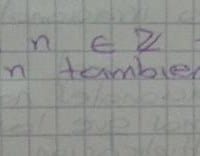 n ∈ ℤ
n tambien